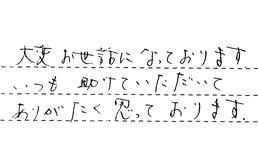 大変お世話になっております
いつも助けていただいて
ありがたく思っております.